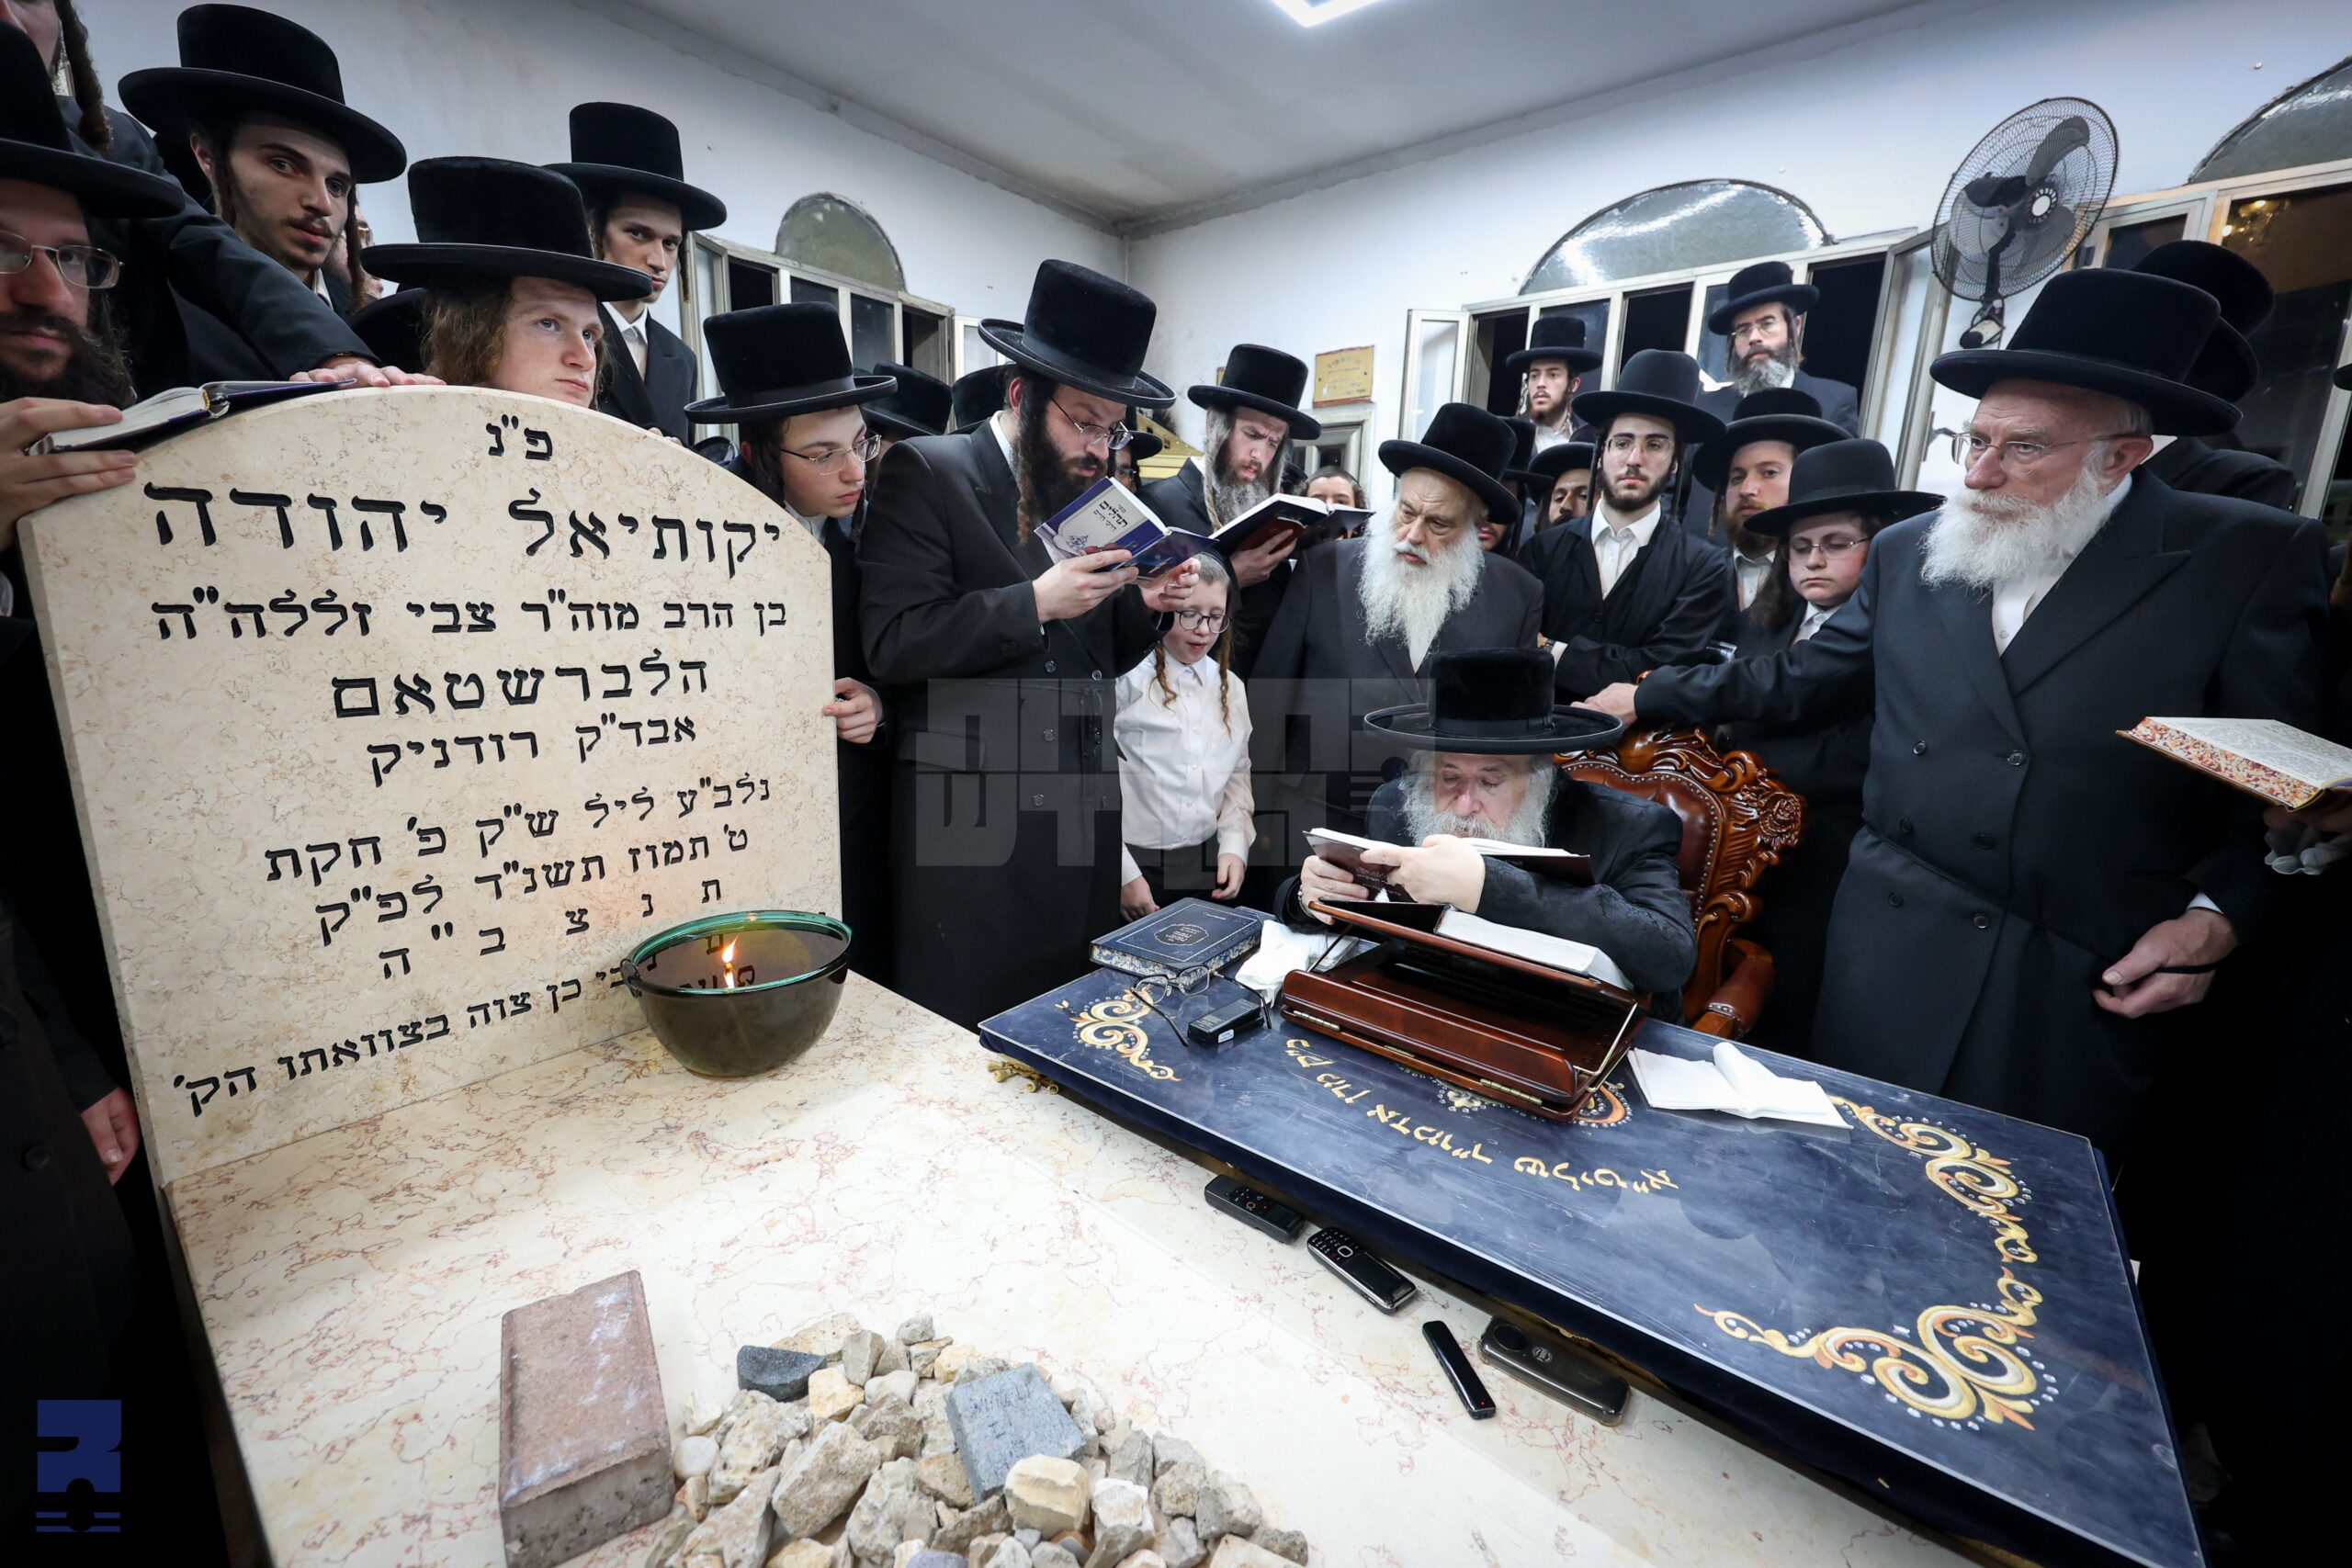 פ"נ
יקותיאל יהודה
בן הרב מוה"ר צבי זללה"ה
הלברשטאם
אבד"ק רודניק
נלב"ע ליל ש"ק פ' חקת
ט' תמוז תשנ"ד לפ"ק
ת נ צ ב " ה
כן צוה בצוואתו הק'
תהלים
כ"ק מרן אדמו"ר שליט"א